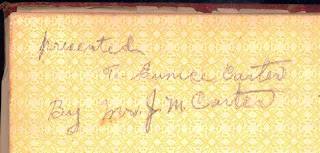 presented
To Eunice Carter
By Mrs. J. M. Carter